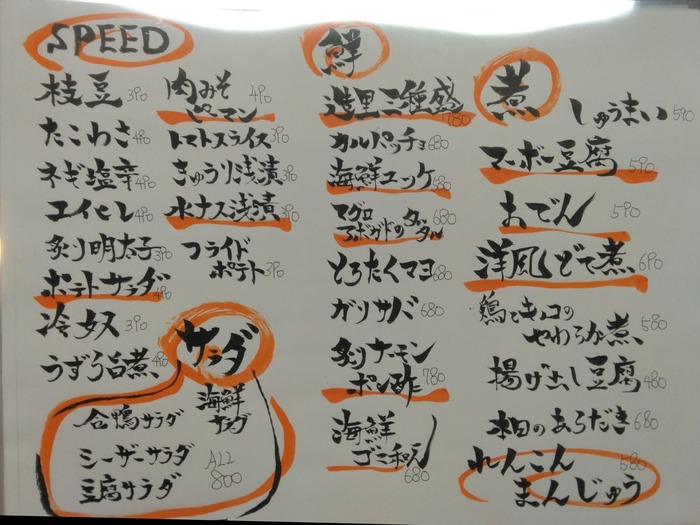 SPEED
枝豆 390
たこわさ 490
ネギ塩辛 490
エイヒレ 490
炙り明太子 390
ポテトサラダ 490
冷奴 390
うずら旨煮 490
肉みそ
ピーマン 490
トマトスライス 390
きゅうり浅漬 390
水ナス浅漬 390
フライド
ポテト 390
サラダ
海鮮
サラダ
合鴨サラダ
シーザーサラダ
豆腐サラダ
ALL
800
鮮
造里三種盛 780
カルパッチョ 680
海鮮ユッケ 680
マグロ
アボカドのタルタル 680
とろたくマヨ 680
ガリサバ 680
炙りサーモン
ポン酢 780
海鮮
ゴマ和え 680
煮
しゅうまい 590
マーボー豆腐 590
おでん 590
洋風どて煮 690
鶏とキノコの
やわらか煮 580
揚げ出し豆腐 480
本日のあらだき 680
れんこん
まんじゅう 580